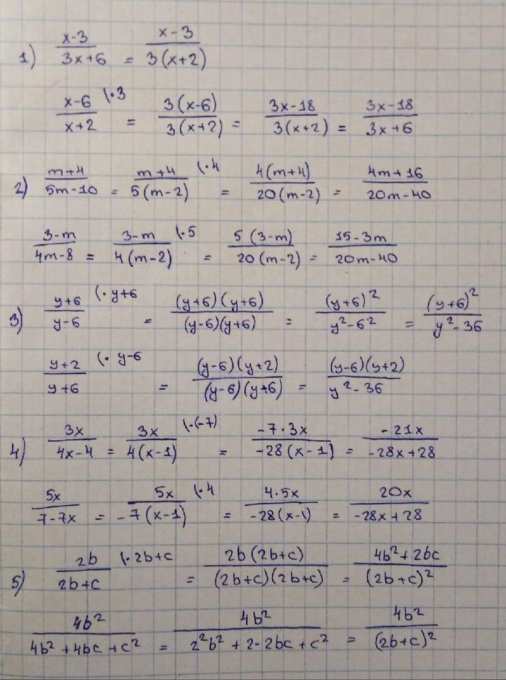 1) (x-3)/(3x+6) = (x-3)/(3(x+2))
(x-6)/(x+2) \·3 = (3(x-6))/(3(x+2)) = (3x-18)/(3(x+2)) = (3x-18)/(3x+6)
2) (m+4)/(5m-10) = (m+4)/(5(m-2)) \·4 = (4(m+4))/(20(m-2)) = (4m+16)/(20m-40)
(3-m)/(4m-8) = (3-m)/(4(m-2)) \·5 = (5(3-m))/(20(m-2)) = (15-3m)/(20m-40)
3) (y+6)/(y-6) \·y+6 = ((y+6)(y+6))/((y-6)(y+6)) = (y+6)²/(y²-6²) = (y+6)²/(y²-36)
(y+2)/(y+6) \·y-6 = ((y-6)(y+2))/((y-6)(y+6)) = ((y-6)(y+2))/(y²-36)
4) 3x/(4x-4) = 3x/(4(x-1)) \·(-7) = (-7·3x)/(-28(x-1)) = (-21x)/(-28x+28)
5x/(7-7x) = 5x/(-7(x-1)) \·4 = (4·5x)/(-28(x-1)) = 20x/(-28x+28)
5) 2b/(2b+c) \·2b+c = (2b(2b+c))/((2b+c)(2b+c)) = (4b²+2bc)/(2b+c)²
4b²/(4b²+4bc+c²) = 4b²/(2²b²+2·2bc+c²) = 4b²/(2b+c)²